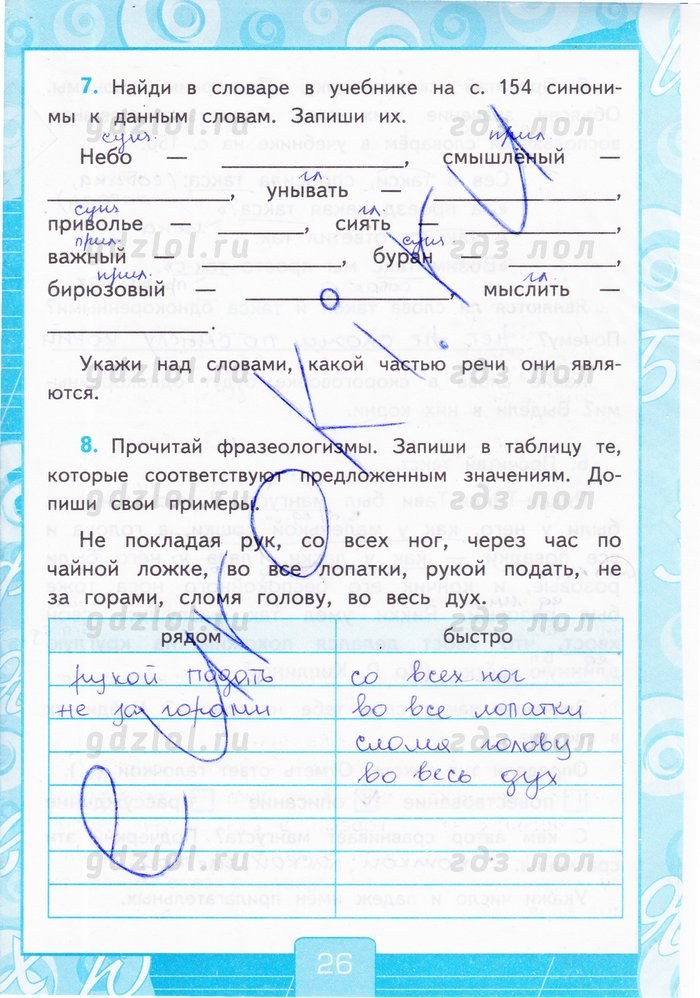 7. Найди в словаре в учебнике на с. 154 синони-
мы к данным словам. Запиши их.
сущ. прил.
Небо — ____________, смышлёный —
гл.
____________, унывать — ____________,
сущ гл.
приволье — ______, сиять — ____________,
прил. сущ
важный — ____________, буран — ________,
прил. гл.
бирюзовый — ____________, мыслить —
____________.
Укажи над словами, какой частью речи они явля-
ются.
8. Прочитай фразеологизмы. Запиши в таблицу те,
которые соответствуют предложенным значениям. До-
пиши свои примеры.
Не покладая рук, со всех ног, через час по
чайной ложке, во все лопатки, рукой подать, не
за горами, сломя голову, во весь дух.
рядом быстро
рукой подать со всех ног
не за горами во все лопатки
сломя голову
во весь дух
26
gdzlol.ru гдз лол
gdzlol.ru гдз лол
gdzlol.ru гдз лол
gdzlol.ru гдз лол
gdzlol.ru гдз лол
gdzlol.ru гдз лол
gdzlol.ru гдз лол